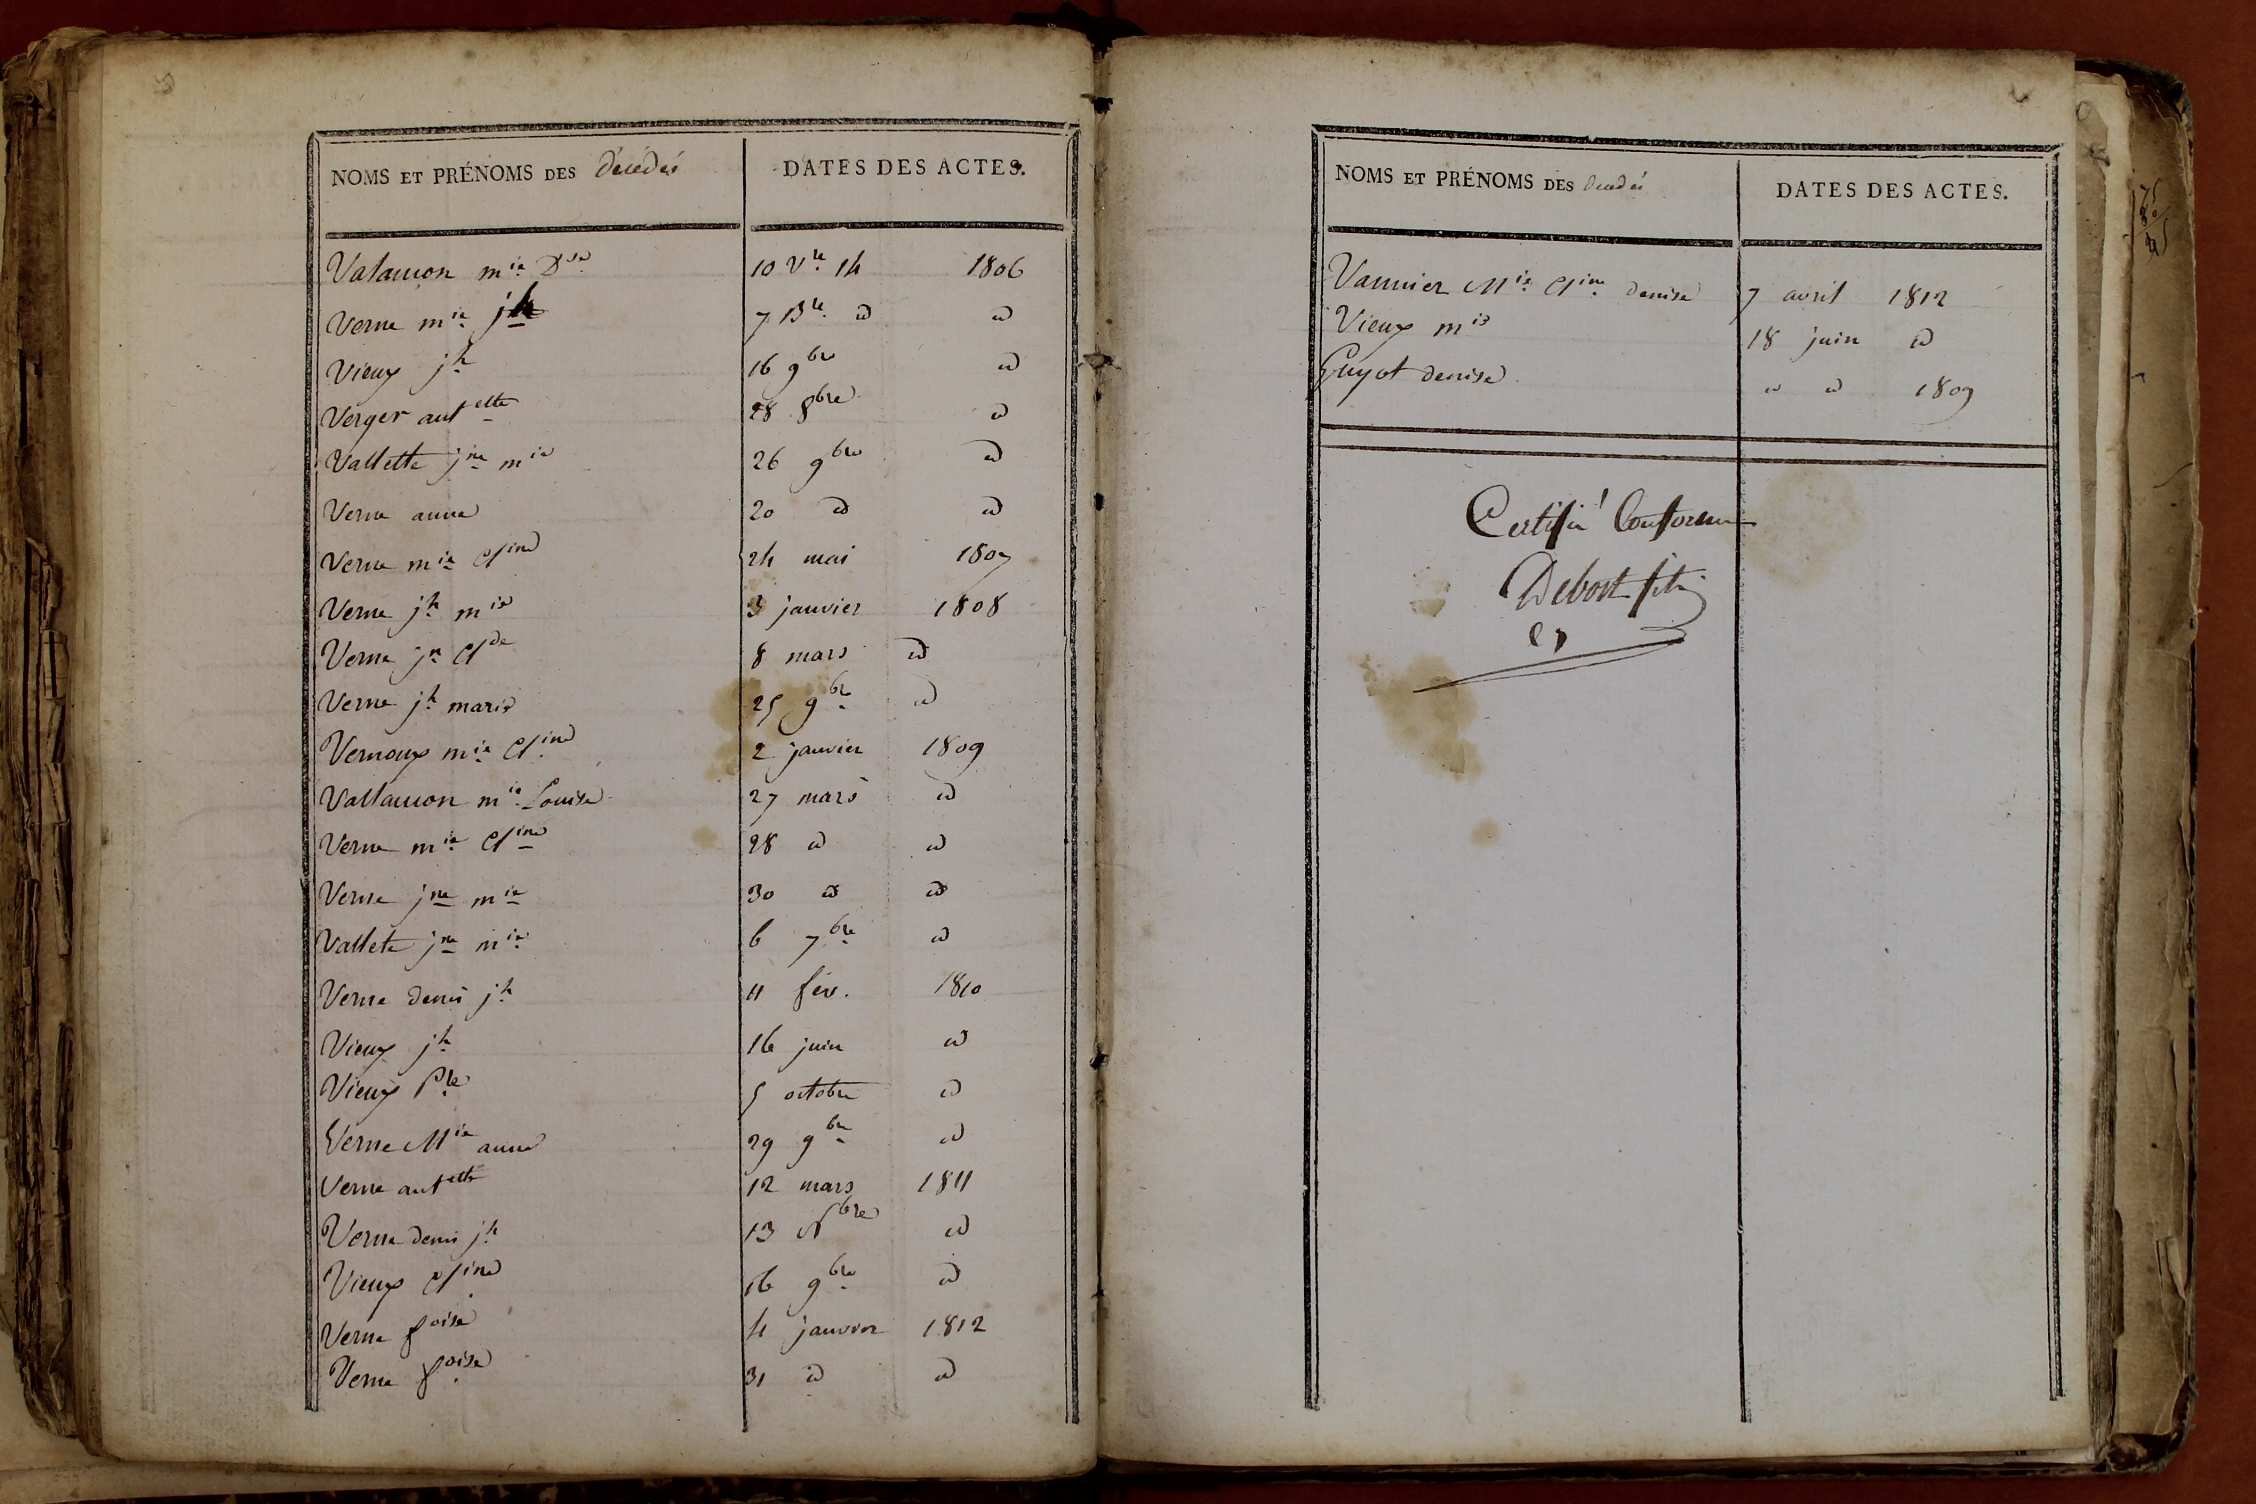 NOMS ET PRÉNOMS DES Décédés DATES DES ACTES.
Valancon mie Dse 10 Vre 14 1806
Verne mie jh 7 Bre id id
Vieux jh 16 9bre id
Verger antette 28 8bre id
Vallette jne mie 26 9bre id
Verne anne 20 id id
Verne mie Cline 24 mai 1807
Verne jh mie 3 janvier 1808
Verne jn Clde 8 mars id
Verne jh marie 25 9bre id
Vernoux mie Cline 2 janvier 1809
Vallancon mie Louise 27 mars id
Verne mie Cline 28 id id
Verne jne mie 30 id id
Vallete jne mie 6 7bre id
Verne denis jh 11 fév. 1810
Vieux jh 16 juin id
Vieux Pre 5 octobre id
Verne Mie anne 29 9bre id
Verne antette 12 mars 1811
Verne denis jh 13 id
Vieux Cline 16 9bre id
Verne foise 4 janvier 1812
Verne foise 31 id id
NOMS ET PRÉNOMS DES Décédés DATES DES ACTES.
Vannier Mie Cline denise 7 avril 1812
Vieux mie 18 juin id
Guyot denise id id 1809
Certifié Conforme
Debost fils